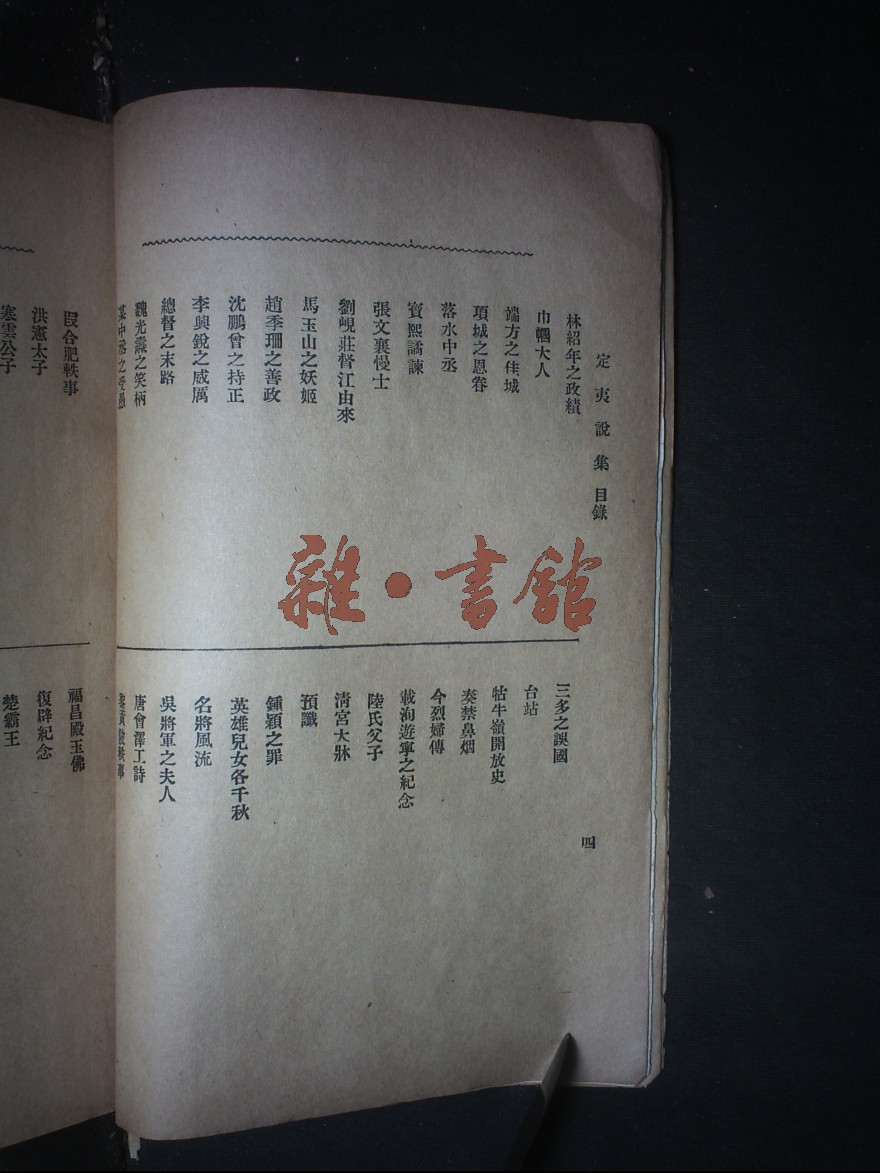 定夷說集 目錄
四
林紹年之政績
巾幗大人
端方之佳城
項城之恩眷
落水中丞
寶熙譎諫
張文襄慢士
劉峴莊督江由來
馬玉山之妖姬
趙季珊之善政
沈鵬曾之持正
李興銳之威厲
總督之末路
魏光燾之笑柄
某中丞之受愚
三多之誤國
台站
牯牛嶺開放史
奏禁鼻烟
今烈婦傳
載洵遊寧之紀念
陸氏父子
清宮大牀
預讖
鍾穎之罪
英雄兒女各千秋
名將風流
吳將軍之夫人
唐會澤工詩
段合肥軼事
洪憲太子
寒雲公子
福昌殿玉佛
復辟紀念
楚霸王
雜·書館